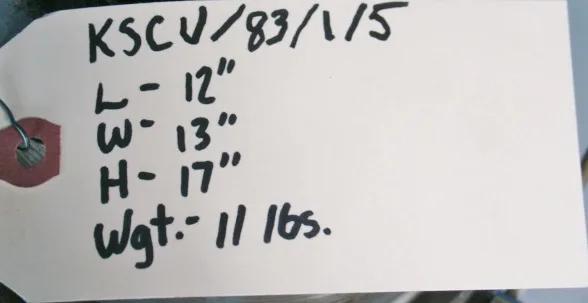 KSCV/83/1/5
L - 12"
W- 13"
H- 17"
Wgt.- 11 lbs.